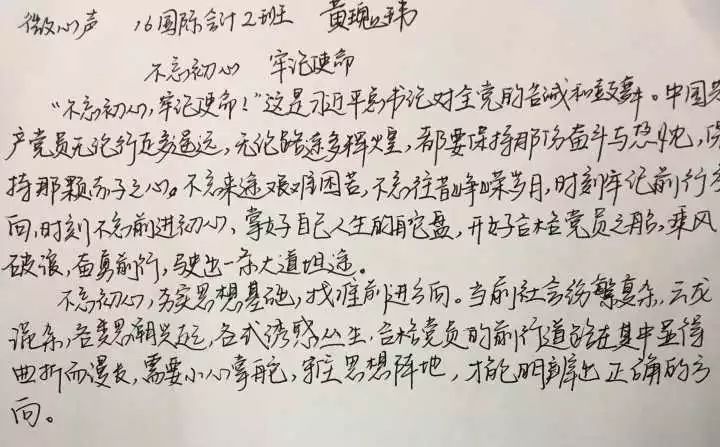 微心声 16国际会计2班 黄瑰玮
不忘初心 牢记使命
“不忘初心,牢记使命!”这是习近平总书记对全党的告诫和鼓舞。中国共
产党员无论行近多遥远,无论路途多辉煌,都要保持那份奋斗与热忱,保
持那颗赤子之心。不忘来途艰难困苦,不忘往昔峥嵘岁月,时刻牢记前行方
向,时刻不忘前进初心,掌好自己人生的舵盘,开好合格党员之船,乘风
破浪,奋勇前行,驶出一条大道坦途。
不忘初心,夯实思想基础,找准前进方向。当前社会纷繁复杂,云龙
混杂,各类思潮兴起,各式诱惑丛生,合格党员的前行道路在其中显得
曲折而漫长,需要小心掌舵,牢思想阵地,才能明辨出正确的方
向。